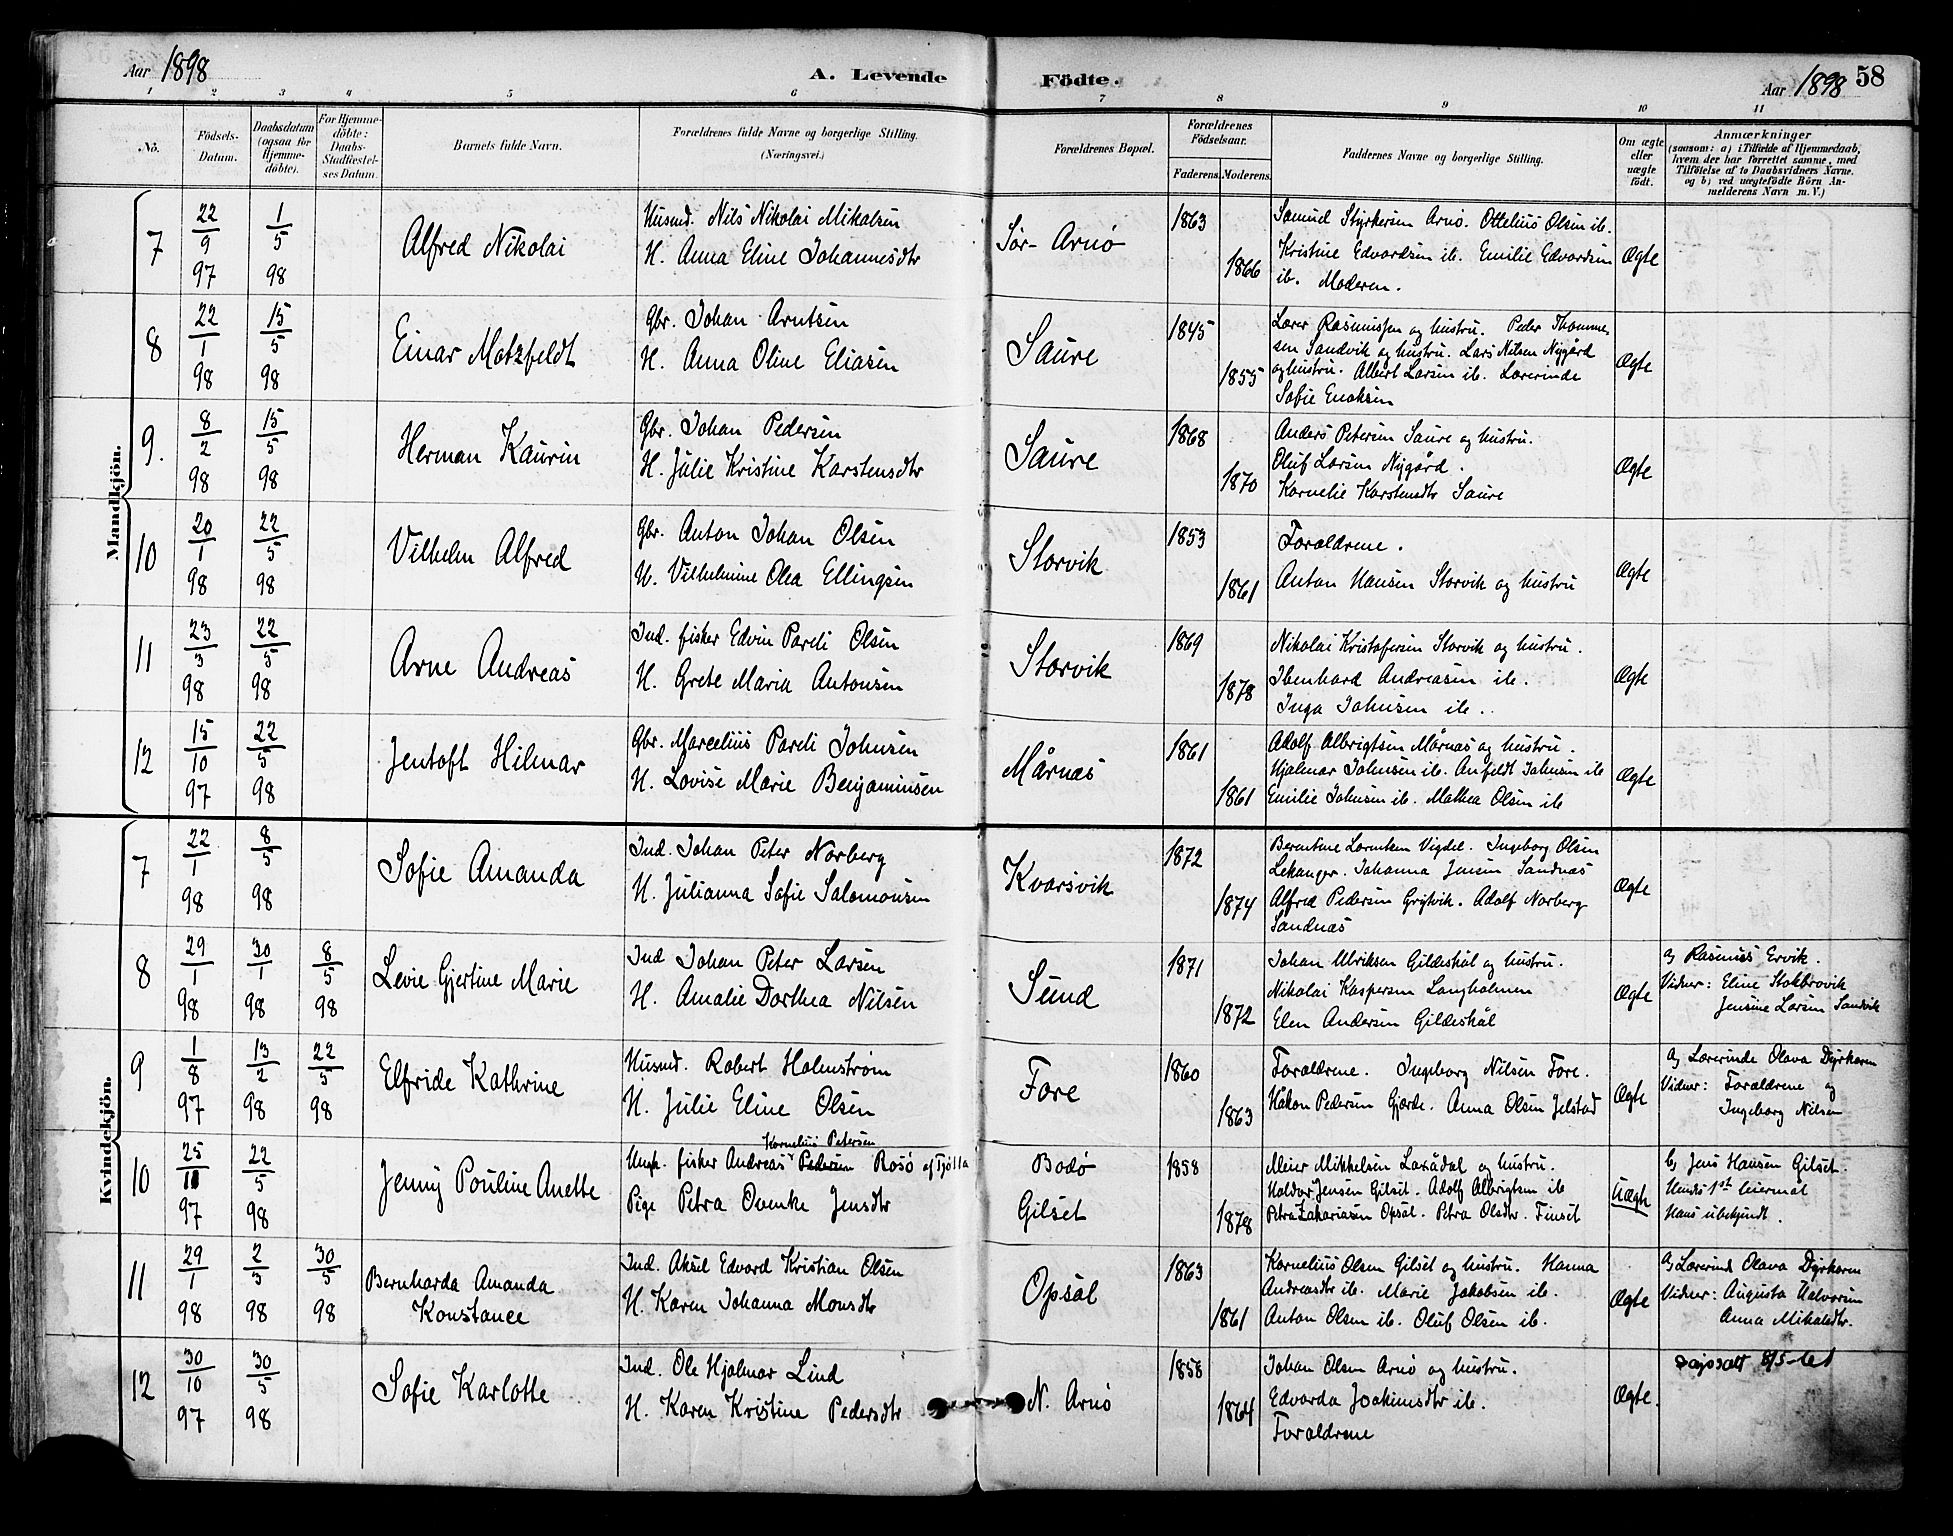 Aar 1898
A. Levende
Födte.
Aar 1898
58
1 2 3 4 5 6 7 8 9 10 11
No.
Födsels-
Datum.
Daabsdatum
(ogsaa for
Hjemme-
döbte).
For Hjemme-
döbte:
Daabs-
Stadfæstel-
ses Datum.
Barnets fulde Navn.
Forældrenes fulde Navne og borgerlige Stilling.
(Næringsvei.)
Forældrenes Bopæl.
Forældrenes
Födselsaar.
Faderens. Moderens.
Faddernes Navne og borgerlige Stilling.
Om ægte
eller
uægte
födt.
Anmærkninger
(saasom: a) i Tilfælde af Hjemmedaab,
hvem der har forrettet samme, med
Tilföielse af to Daabsvidners Navne,
og b) ved uægtefödte Börn An-
melderens Navn m. V.)
Mandkjön.
7
22/9 97
1/5 98
Alfred Nikolai
Husmd. Nils Nikolai Mikalsen
H. Anna Eline Johannesdtr
Sør-Arnø
1863
1866
Samuel Styrkersen Arnø. Ottelius Olsen ib.
Kristine Edvardsen ib. Emilie Edvardsen
ib. Moderen.
Ægte
8
22/1 98
15/5 98
Einar Motzfeldt
Gbr. Johan Arntsen
H. Anna Oline Eliasen
Saure
1845
1855
Lærer Rasmussen og hustru. Peder Thomme
sen Sandvik og hustru. Lars Nilsen Nygård
og hustru. Albert Larsen ib. Lærerinde
Sofie Enoksen
Ægte
9.
8/2 98
15/5 98
Herman Kaurin
Gbr. Johan Pedersen
H. Julie Kristine Karstensdtr
Saure
1868
1870
Anders Petersen Saure og hustru.
Oluf Larsen Nygård.
Kornelie Karstensdtr Saure
Ægte
10
20/1 98
22/5 98
Vilhelm Alfred
Gbr. Anton Johan Olsen
H. Vilhelmine Olea Ellingsen
Storvik
1853
1861
Forældrene.
Anton Hansen Storvik og hustru
Ægte
11
23/3 98
22/5 98
Arne Andreas
Ind. fisker Edvin Pareli Olsen
H. Grete Maria Antonsen
Storvik
1869
1878
Nikolai Kristofersen Storvik og hustru.
Ibenhard Andreasen ib.
Inga Johnsen ib.
Ægte
12
15/10 97
22/5 98
Jentoft Hilmar
Gbr. Marcelius Pareli Johnsen
H. Lovise Marie Benjaminsen
Mårnæs
1861
1861
Adolf Albrigtsen Mårnæs og hustru.
Hjalmar Johnsen ib. Anfeldt Johnsen ib
Emilie Johnsen ib. Mathea Olsen ib
Ægte
Kvindekjön.
7
22/1 98
8/5 98
Sofie Amanda
Ind. Johan Peter Norberg
H. Julianna Sofie Salomonsen
Kvarsvik
1872
1874
Berentine Vigdel. Ingeborg Olsen
Lekanger. Johanna Jensen Sandnæs
Alfred Pedersen Grytvik. Adolf Norberg
Sandnæs
Ægte
8
29/1 98
30/1 98
8/5 98
Levie Gjertine Marie
Ind Johan Peter Larsen
H. Amalie Dorthea Nilsen
Sund
1871
1872
Johan Ulriksen Gildeskål og hustru.
Nikolai Kaspersen Langholmen
Elen Andersen Gildeskål
Ægte
a) Rasmus Ervik.
Vidner: Eline Stokbrovik
Jensine Larsen Sandvik
9
1/8 97
13/2 98
22/5 98
Elfride Kathrine
Husmd. Robert Holmstrøm
H. Julie Eline Olsen
Fore
1860
1863
Forældrene. Ingeborg Nilsen Fore.
Håkon Pedersen Gjærde. Anna Olsen Jelstad
Ægte
a) Lærerinde Olava Dyrhaven
Vidner: Forældrene og
Ingeborg Nilsen
10
25/11 97
22/5 98
Jenny Pouline Anette
Kornelius Petersen
Ungk. fisker Andreas Pedersen Rosø af Tjøtta
Pige Petra Ovenke Jensdtr
Bodø
Gilset
1858
1878
Meier Mikkelsen Laxådal og hustru.
Haldor Jensen Gilset. Adolf Albrigtsen ib
Petra Zakariasen Opsal. Petra Olsdtr. Finset
Uægte
b) Jens Hansen Gilset.
Hendes 1st leiermål
Hans ubekjendt.
11
29/1 98
2/3 98
30/5 98
Bernharda Amanda
Konstance
Ind. Aksel Edvard Kristian Olsen
H. Karen Johanna Monsdtr
Opsal
1863
1861
Kornelius Olsen Gilset og hustru. Hanna
Andreasdtr ib. Marie Jakobsen ib.
Anton Olsen ib. Oluf Olsen ib.
Ægte
a) Lærerind Olava Dyrhaven
Vidner: Augusta Halvorsen
Anna Mikalsdtr.
12
30/10 97
30/5 98
Sofie Karlotte
Ind. Ole Hjalmar Lind
H. Karen Kristine Pedersdtr
N. Arnø
1858
1864
Johan Olsen Arnø og hustru.
Edvarda Joakimsdtr ib.
Forældrene
Ægte.